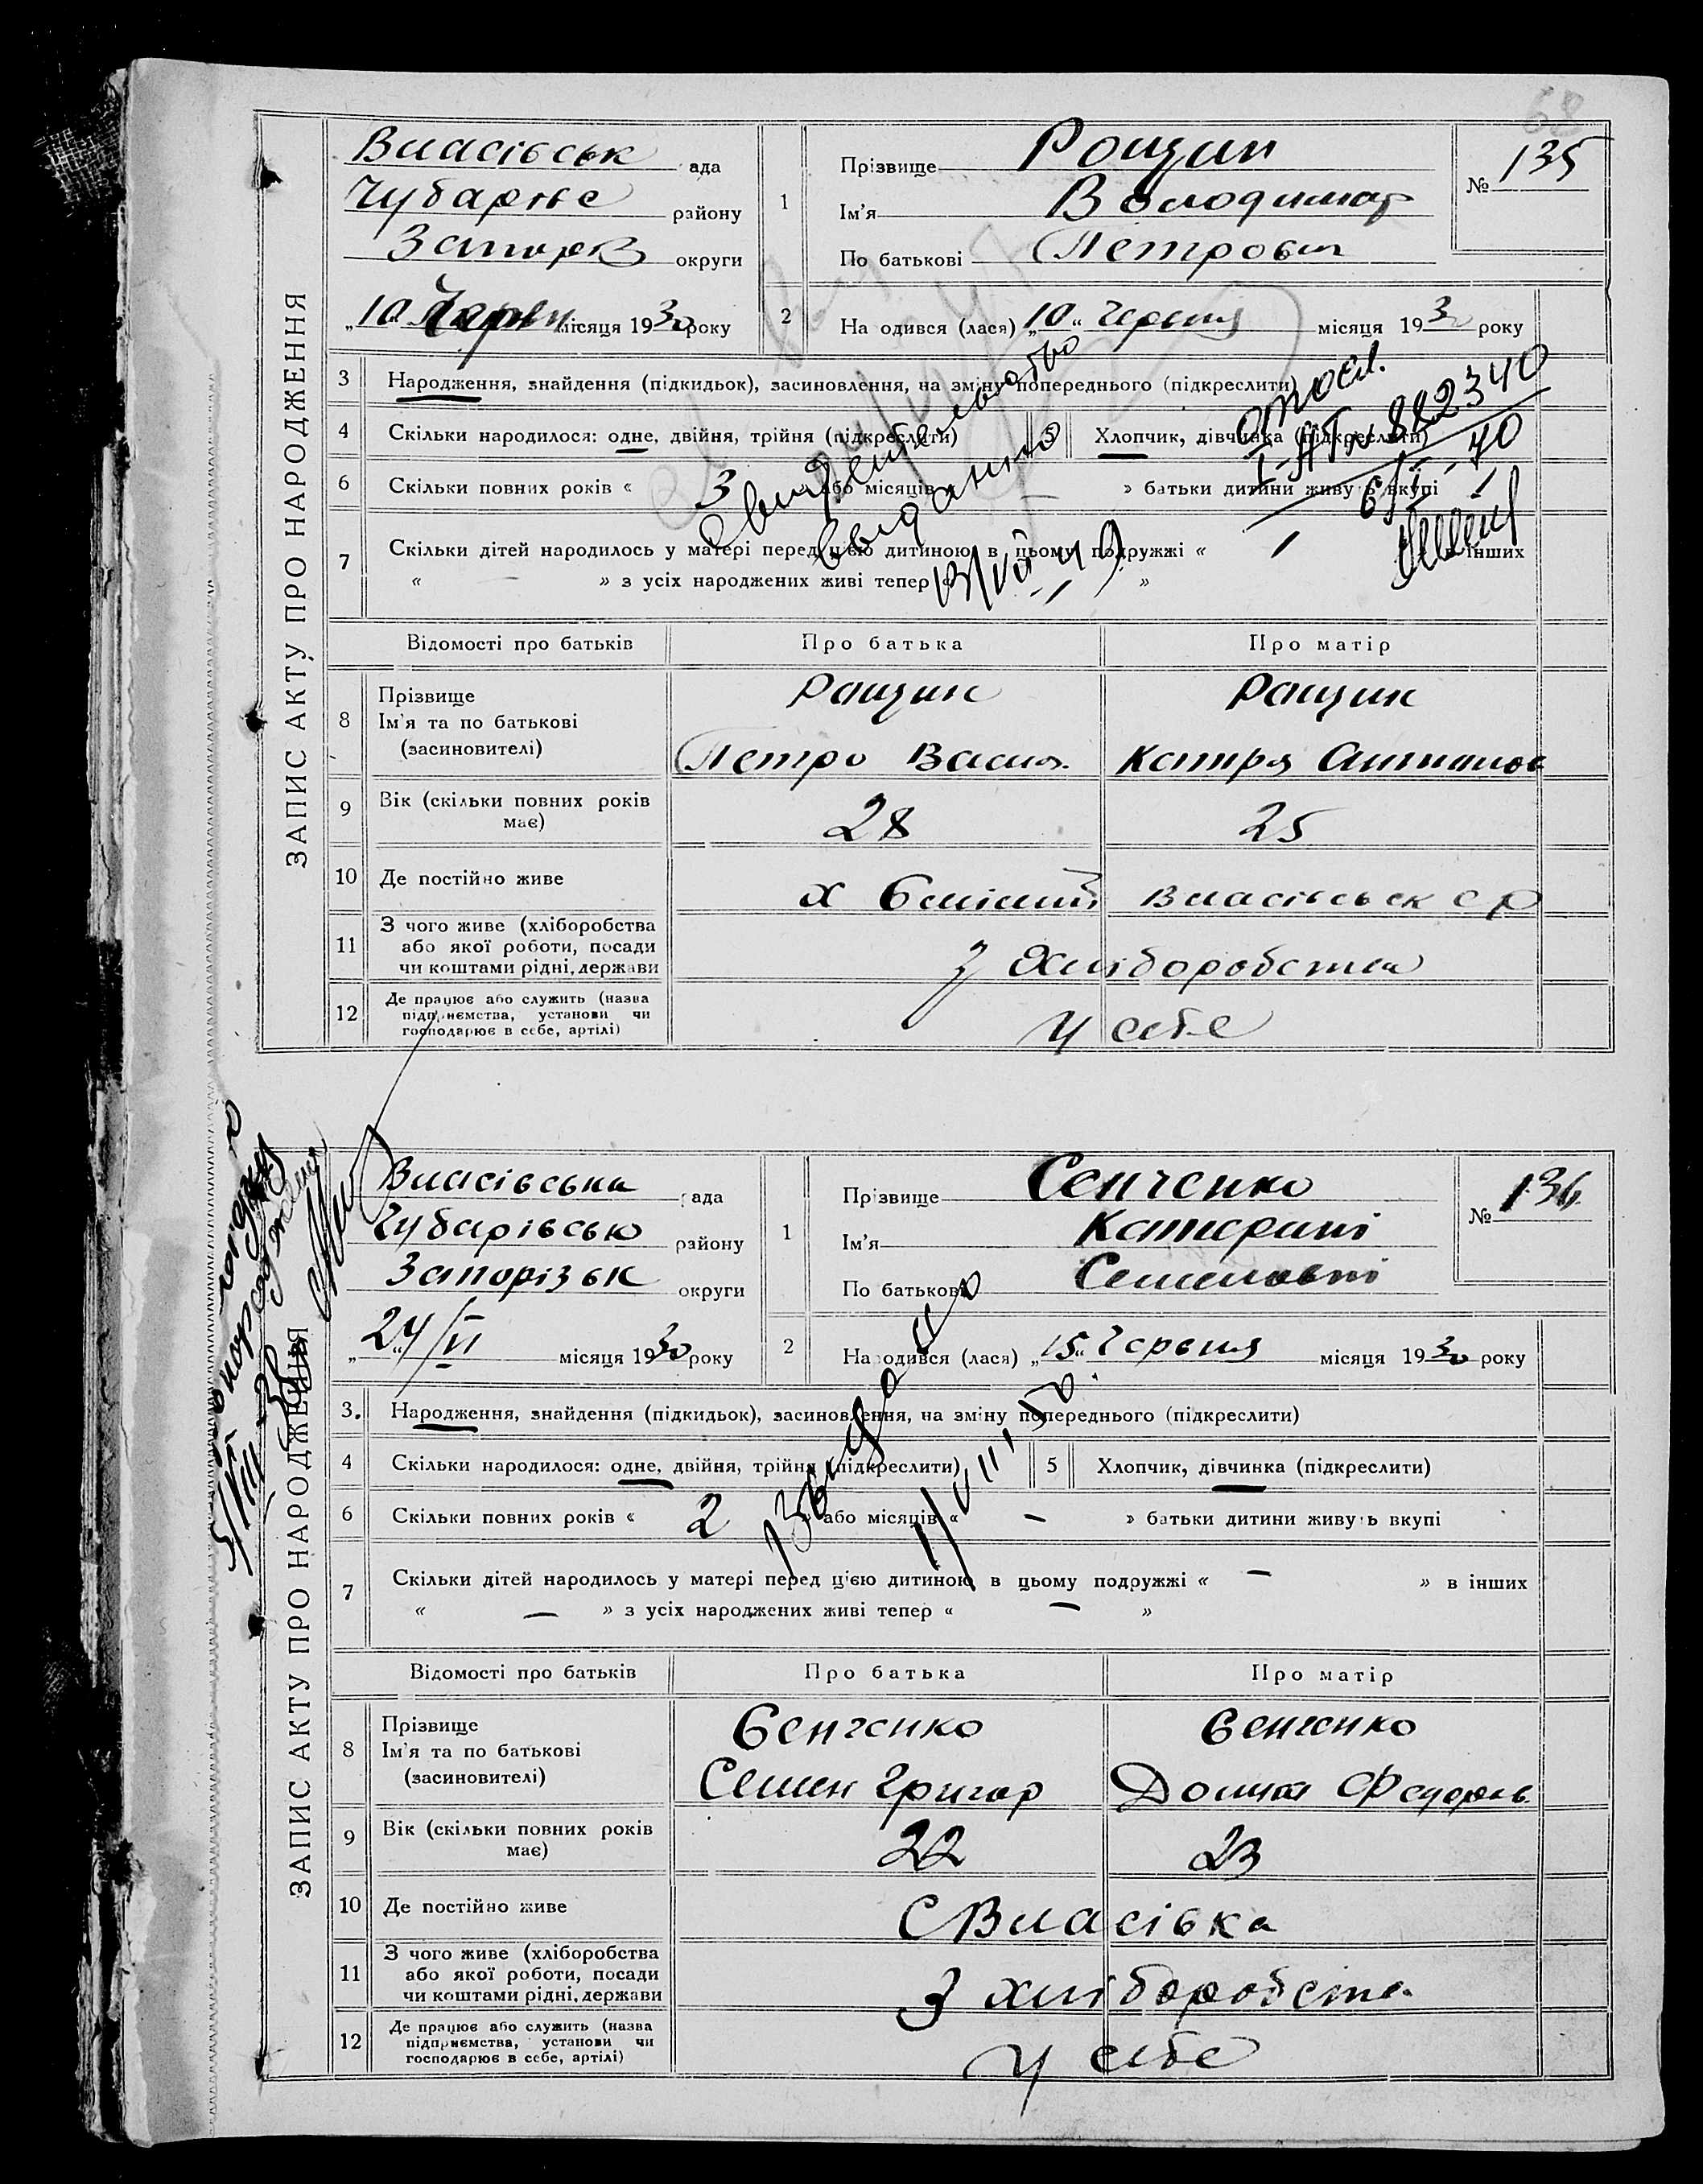 68
ЗАПИС АКТУ ПРО НАРОДЖЕННЯ
Власівськ ада
Чубарівс району
Запоріз округи
„10 Червн місяця 1930 року
1
Прізвище Рощин
Ім'я Володимир
По батькові Петрович
№ 135
2 На одився (лася) „10“ червня місяця 1930 року
3 Народження, знайдення (підкидьок), засиновлення, на зміну попереднього (підкреслити)
4 Скільки народилося: одне, двійня, трійня (підкреслити) 5 Хлопчик, дівчинка (підкреслити)
6 Скільки повних років « 3 » або місяців « — » батьки дитини живуть вкупі
7 Скільки дітей народилось у матері перед цією дитиною в цьому подружжі « 1 » в інших
« » з усіх народжених живі тепер « 1 »
Свидетельство
выдано
13/VII 49
I-АП № 882340
6/I - 40
Відомості про батьків Про батька Про матір
8 Прізвище Ім'я та по батькові (засиновителі)
Рощин Рощин
Петро Васил. Катря Антонов
9 Вік (скільки повних років має) 28 25
10 Де постійно живе х Власівськ с р
11 З чого живе (хліборобства або якої роботи, посади чи коштами рідні, держави
З хліборобства
12 Де працює або служить (назва підприємства, установи чи господарює в себе, артілі)
У себе
ЗАПИС АКТУ ПРО НАРОДЖЕННЯ
Власівська ада
Чубарівсько району
Запорізьк округи
„24/VI місяця 1930 року
1
Прізвище Сенченко
Ім'я Катерині
По батькові Семеновні
№ 136
2 На одився (лася) „15“ червня місяця 1930 року
3. Народження, знайдення (підкидьок), засиновлення, на зміну попереднього (підкреслити)
4 Скільки народилося: одне, двійня, трійня (підкреслити) 5 Хлопчик, дівчинка (підкреслити)
6 Скільки повних років « 2 » або місяців « — » батьки дитини живуть вкупі
7 Скільки дітей народилось у матері перед цією дитиною в цьому подружжі « — » в інших
« — » з усіх народжених живі тепер « — »
Відомості про батьків Про батька Про матір
8 Прізвище Ім'я та по батькові (засиновителі)
Сенченко Сенченко
Семен Григор Домна Федоров.
9 Вік (скільки повних років має) 22 23
10 Де постійно живе С Власівка
11 З чого живе (хліборобства або якої роботи, посади чи коштами рідні, держави
З хліборобства
12 Де працює або служить (назва підприємства, установи чи господарює в себе, артілі)
У себе